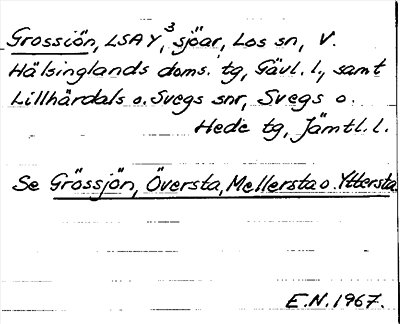 Grossjön, LSA Y, 3 sjöar, Los sn, V.
Hälsinglands doms. tg, Gävl. l., samt
Lillhärdals o. Svegs snr, Svegs o.
Hede tg, Jämtl. l.
Se Grössjön, Översta, Mellersta o. Yttersta
E.N. 1967.